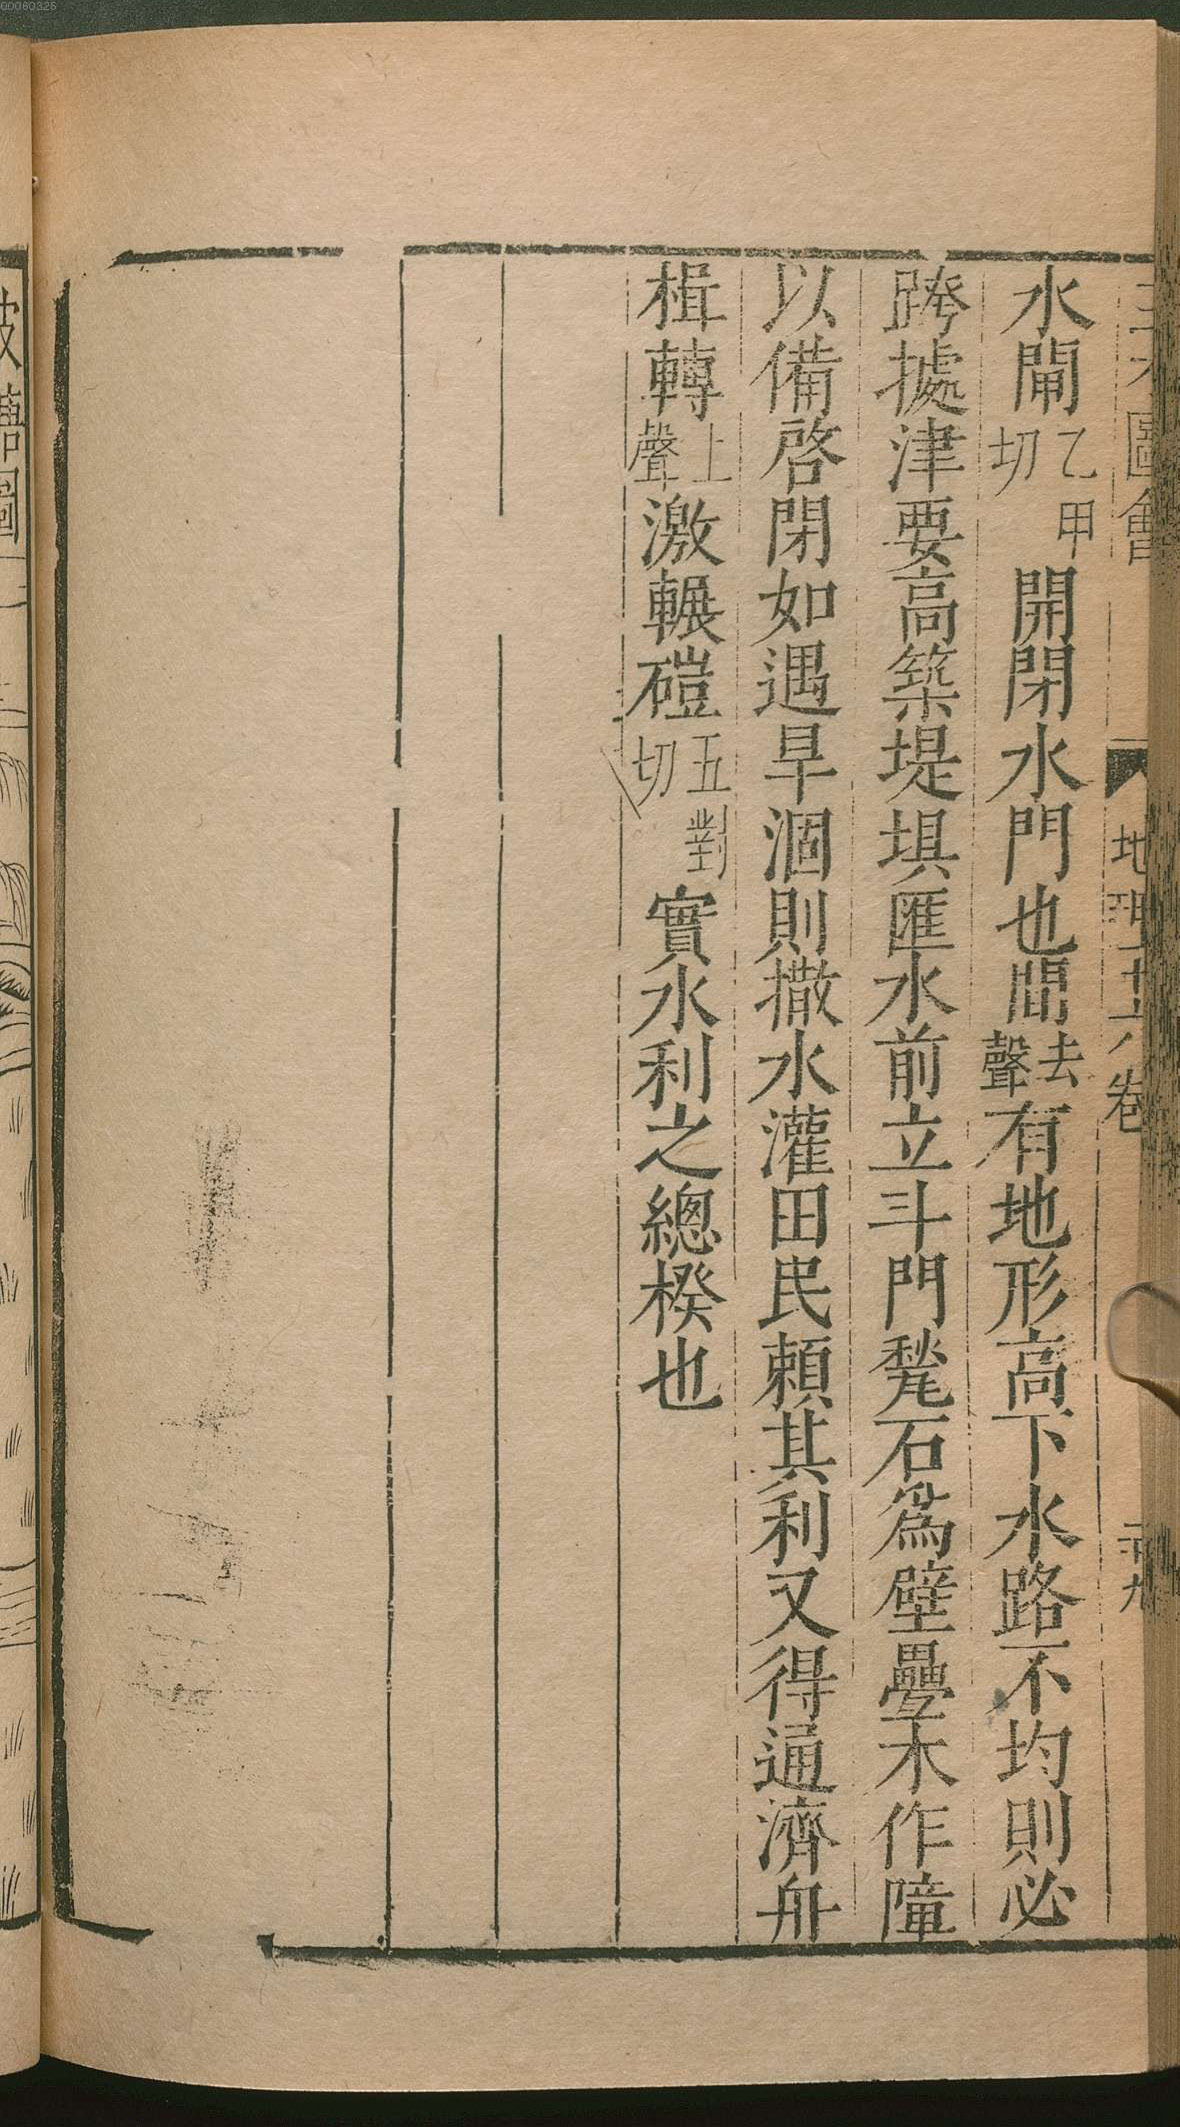 三才圖會 地理十六卷 三十九
水閘乙甲切開閉水門也間去聲有地形高下水路不均則必
跨據津要高築堤埧匯水前立斗門甃石為壁疊木作障
以備啓閉如遇旱涸則撒水灌田民賴其利又得通濟舟
楫轉上聲激輾磑五對切實水利之總揆也
陂塘圖
00060325